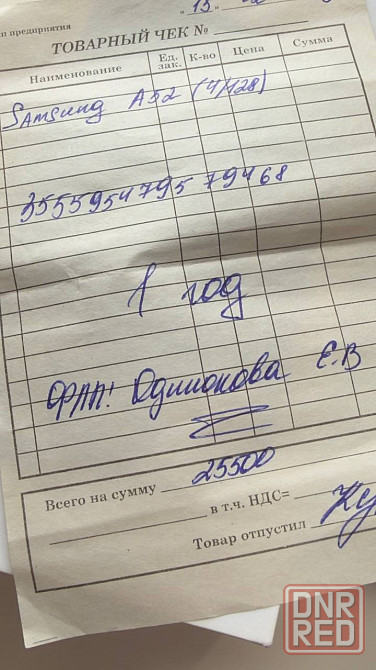 " 13 "
п предприятия
ТОВАРНЫЙ ЧЕК №
Наименование Ед. зак. К-во Цена Сумма
SAMSung A52 (4/128)
355595479579468
1 год
ФЛП! Одинокова Е.В
Всего на сумму 25500
в т.ч. НДС=
Товар отпустил
DNR
RED